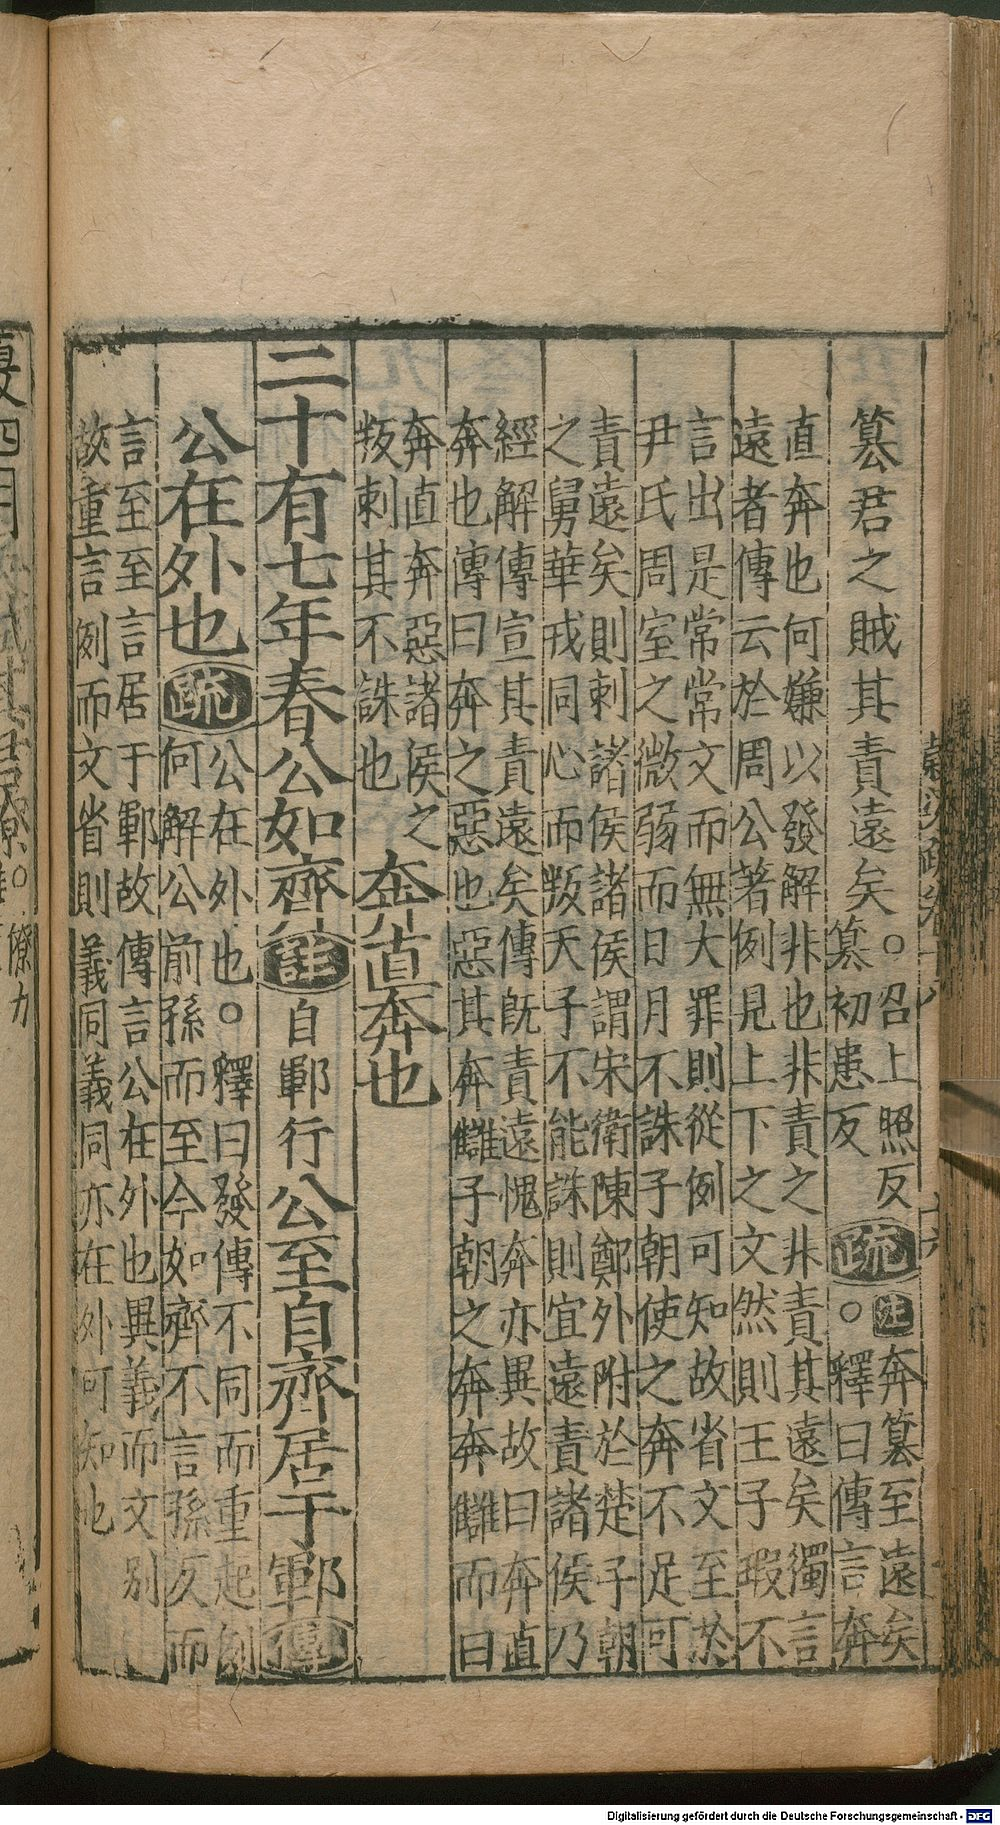 篡君之賊其責遠矣○召上照反
篡初患反疏注奔篡至遠矣
○釋曰傳言奔
直奔也何嫌以發解非也非責之非責其遠矣獨言
遠者傳云於周公著例見上下之文然則王子瑕不
言出是常常文而無大罪則從例可知故省文至於
尹氏周室之微弱而日月不誅子朝使之奔不足可
責遠矣則刺諸侯諸侯謂宋衛陳鄭外附於楚子朝
之舅華戎同心而叛天子不能誅則宜遠責諸侯乃
經解傳宣其責遠矣傳既責遠愧奔亦異故曰奔直
奔也傳曰奔之惡也惡其奔讎子朝之奔奔讎而曰
奔直奔惡諸侯之
叛刺其不誅也
奔直奔也
二十有七年春公如齊註自鄆行公至自齊居于鄆傳
公在外也疏公在外也○釋曰發傳不同而重起例
何解公前孫而至今如齊不言孫反而
言至至言居于鄆故傳言公在外也異義而文別
故重言例而文省則義同義同亦在外可知也
夏四月
Digitalisierung gefördert durch die Deutsche Forschungsgemeinschaft - DFG